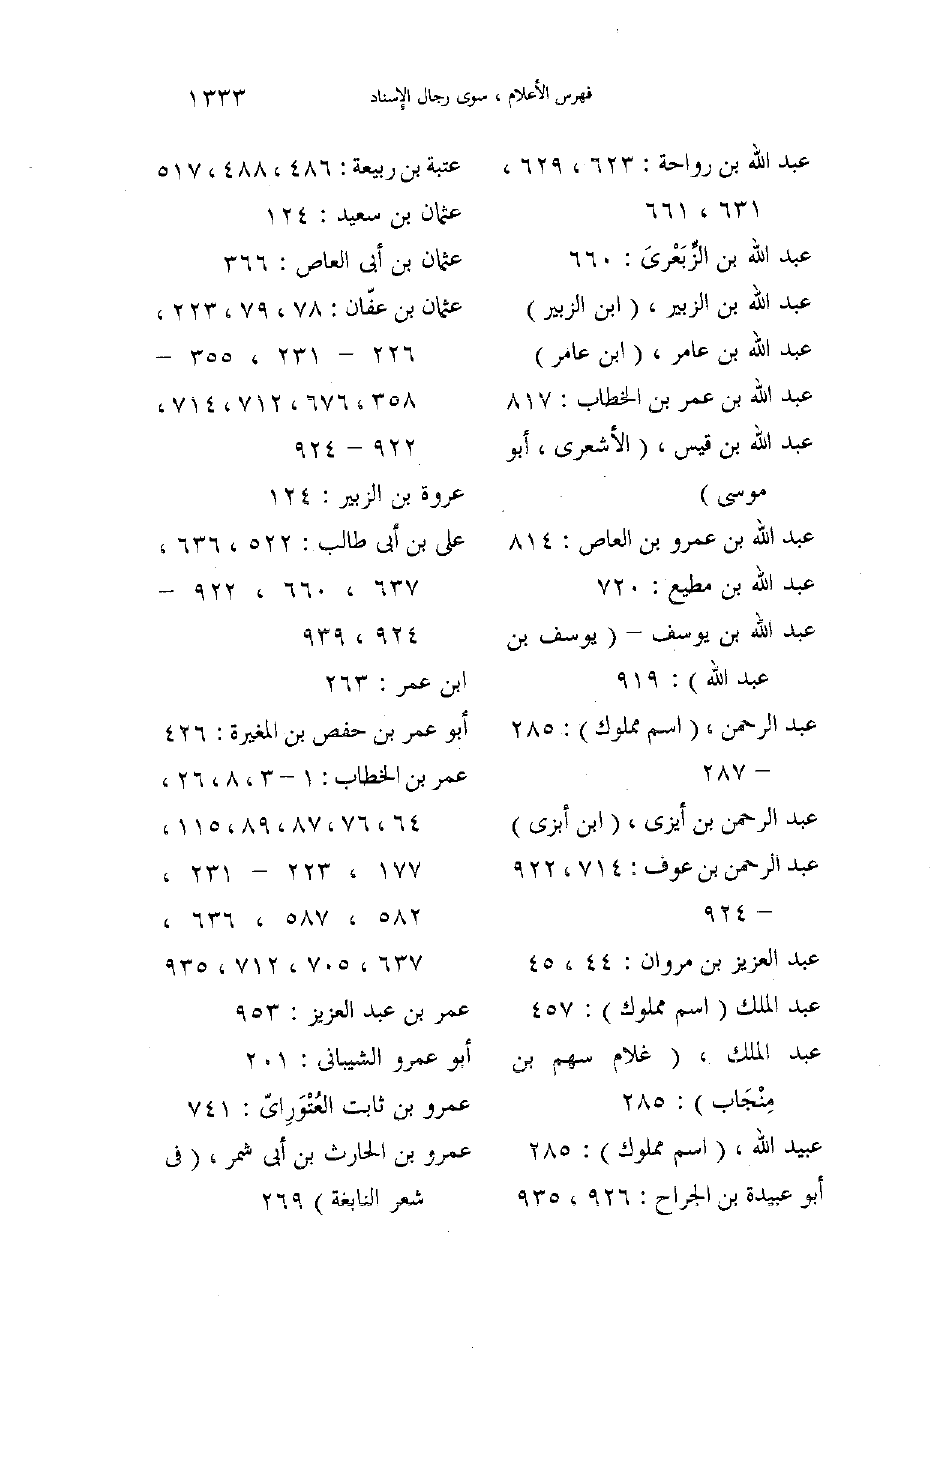 فهرس الأعلام ، سوى رجال الإسناد ١٣٣٣
عبد الله بن رواحة : ٦٢٣ ، ٦٢٩ ،
٦٣١ ، ٦٦١
عبد الله بن الزِّبَعْرىَ : ٦٦٠
عبد الله بن الزبير ، ( ابن الزبير )
عبد الله بن عامر ، ( ابن عامر )
عبد الله بن عمر بن الخطاب : ٨١٧
عبد الله بن قيس ، ( الأشعرى ، أبو
موسى )
عبد الله بن عمرو بن العاص : ٨١٤
عبد الله بن مطيع : ٧٢٠
عبد الله بن يوسف – ( يوسف بن
عبد الله ) : ٩١٩
عبد الرحمن ، ( اسم مملوك ) : ٢٨٥
– ٢٨٧
عبد الرحمن بن أبزى ، ( ابن أبزى )
عبد الرحمن بن عوف : ٧١٤ ، ٩٢٢
– ٩٢٤
عبد العزيز بن مروان : ٤٤ ، ٤٥
عبد الملك ( اسم مملوك ) : ٤٥٧
عبد الملك ، ( غلام سهم بن
مِنْجَاب ) : ٢٨٥
عبيد الله ، ( اسم مملوك ) : ٢٨٥
أبو عبيدة بن الجراح : ٩٢٦ ، ٩٣٥
عتبة بن ربيعة : ٤٨٦ ، ٤٨٨ ، ٥١٧
عثمان بن سعيد : ١٢٤
عثمان بن أبى العاص : ٣٦٦
عثمان بن عفّان : ٧٨ ، ٧٩ ، ٢٢٣ ،
٢٢٦ – ٢٣١ ، ٣٥٥ –
٣٥٨ ، ٦٧٦ ، ٧١٢ ، ٧١٤ ،
٩٢٢ – ٩٢٤
عروة بن الزبير : ١٢٤
على بن أبى طالب : ٥٢٢ ، ٦٣٦ ،
٦٣٧ ، ٦٦٠ ، ٩٢٢ –
٩٢٤ ، ٩٣٩
ابن عمر : ٢٦٣
أبو عمر بن حفص بن المغيرة : ٤٢٦
عمر بن الخطاب : ١ – ٣ ، ٨ ، ٢٦ ،
٦٤ ، ٧٦ ، ٨٧ ، ٨٩ ، ١١٥ ،
١٧٧ ، ٢٢٣ – ٢٣١ ،
٥٨٢ ، ٥٨٧ ، ٦٣٦ ،
٦٣٧ ، ٧٠٥ ، ٧١٢ ، ٩٣٥
عمر بن عبد العزيز : ٩٥٣
أبو عمرو الشيبانى : ٢٠١
عمرو بن ثابت العُتْوَرِاىّ : ٧٤١
عمرو بن الحارث بن أبى شمر ، ( فى
شعر النابغة ) ٢٦٩